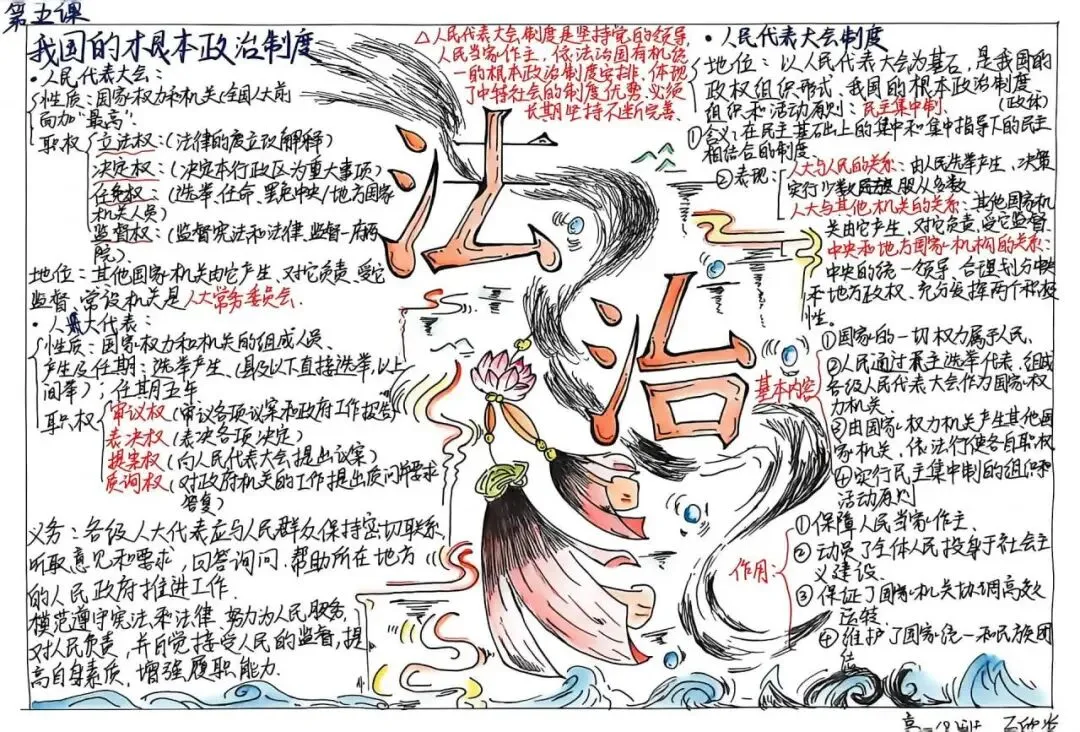 第五课
我国的根本政治制度
·人民代表大会:
性质:国家权力机关(全国人大前
面加"最高".
职权
立法权:(法律的废立改解释)
决定权:(决定本行政区为重大事项)
任免权:(选举、任命、罢免中央/地方国家
机关人员)
监督权:(监督宪法和法律、监督一府两
院).
地位:其他国家机关由它产生、对它负责、受它
监督,常设机关是人大常务委员会.
·人大代表:
性质:国家权力机关的组成人员.
产生及任期:选举产生、(县及以下直接选举,以上
间举);任期五年
职权
审议权(审议各项议案和政府工作报告)
表决权(表决各项决定)
提案权(向人民代表大会提出议案)
质询权(对政府机关的工作提出质问所要求
答复)
义务:各级人大代表应与人民群众保持密切联系,
听取意见和要求,回答询问.帮助所在地方
的人民政府推进工作.
模范遵守宪法和法律、努力为人民服务,
对人民负责,并自觉接受人民的监督,提
高自身素质,增强履职能力.
△人民代表大会制度是坚持党的领导,
人民当家作主,依法治国有机统
一的根本政治制度安排.体现
了中特社会的制度优势.必须
长期坚持不断完善.
法
治
·人民代表大会制度
地位:以人民代表大会为基石,是我国的
政权组织形式、我国的根本政治制度.
(政体)
组织和活动原则:民主集中制.
①含义:在民主基础上的集中和集中指导下的民主
相结合的制度.
②表现:
人大与人民的关系:由人民选举产生、决策
实行少数服从多数
人大与其他机关的关系:其他国家机
关由它产生、对它负责、受它监督.
中央和地方国家机构的关系:
中央的统一领导,合理划分中央
和地方政权、充分发挥两个积极
性.
基本内容
①国家的一切权力属于人民.
②人民通过民主选举代表,组成
各级人民代表大会作为国家权
力机关.
③由国家权力机关产生其他国
家机关,依法行使各自职权
④实行民主集中制的组织和
活动原则
作用:
①保障人民当家作主.
②动员了全体人民投身于社会主
义建设.
③保证了国家机关协调高效
运转.
④维护了国家统一和民族团
结